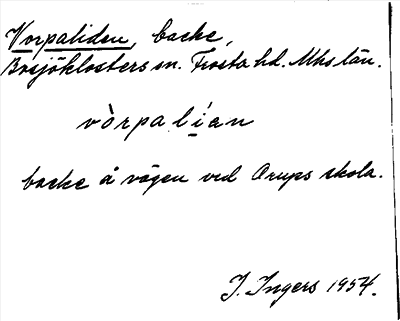 Vorpaliden, backe,
Bosjöklosters sn. Frosta hd. Mhs län.
vòrpalían
backe å vägen ved Orups skola.
J. Ingers 1954.